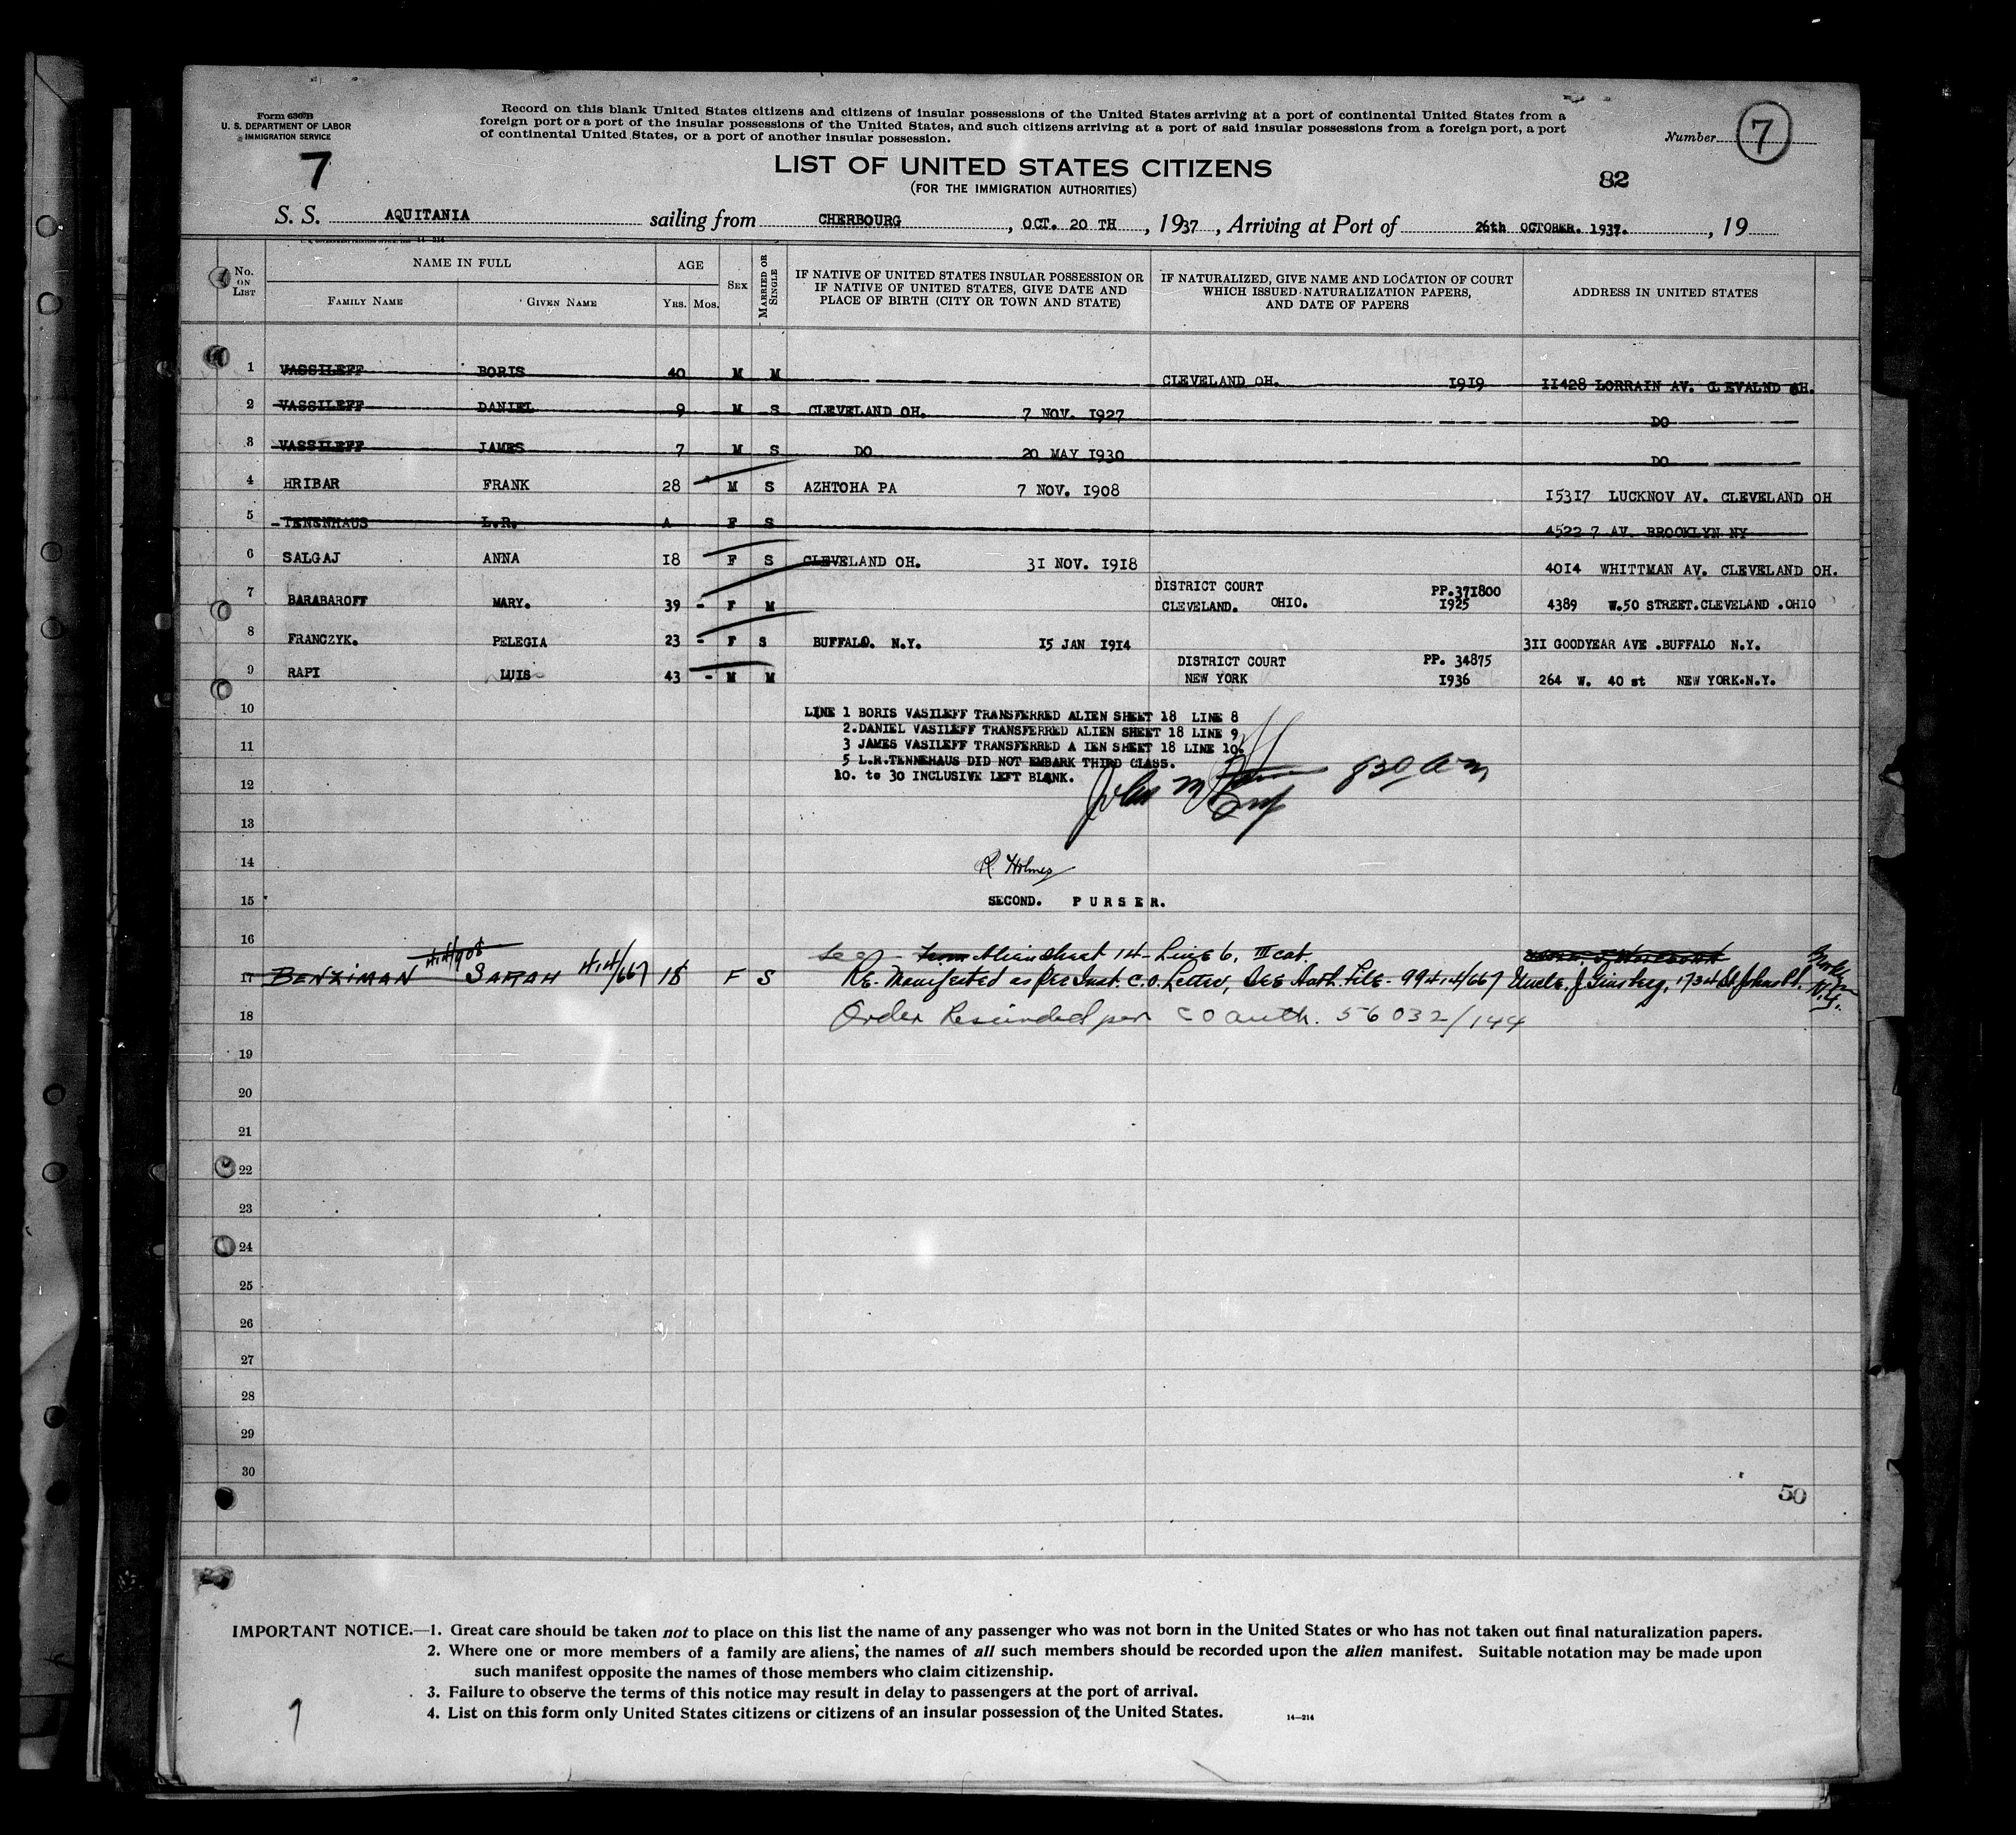 Form 6307B
U. S. DEPARTMENT OF LABOR
IMMIGRATION SERVICE
7
Record on this blank United States citizens and citizens of insular possessions of the United States arriving at a port of continental United States from a
foreign port or a port of the insular possessions of the United States, and such citizens arriving at a port of said insular possessions from a foreign port, a port
of continental United States, or a port of another insular possession.
Number 7
LIST OF UNITED STATES CITIZENS
(FOR THE IMMIGRATION AUTHORITIES)
82
S. S. AQUITANIA sailing from CHERBOURG, OCT. 20 TH, 1937, Arriving at Port of 26th OCTOBER. 1937., 19
No. ON LIST
NAME IN FULL
FAMILY NAME GIVEN NAME
AGE
YRS. MOS.
SEX
MARRIED OR SINGLE
IF NATIVE OF UNITED STATES INSULAR POSSESSION OR
IF NATIVE OF UNITED STATES, GIVE DATE AND
PLACE OF BIRTH (CITY OR TOWN AND STATE)
IF NATURALIZED, GIVE NAME AND LOCATION OF COURT
WHICH ISSUED NATURALIZATION PAPERS,
AND DATE OF PAPERS
ADDRESS IN UNITED STATES
1 VASSILEFF BORIS 40 M M CLEVELAND OH. 1919 11428 LORRAIN AV. CLEVALND OH.
2 VASSILEFF DANIEL 9 M S CLEVELAND OH. 7 NOV. 1927 DO
3 VASSILEFF JAMES 7 M S DO 20 MAY 1930 DO
4 HRIBAR FRANK 28 M S AZHTOHA PA 7 NOV. 1908 15317 LUCKNOV AV. CLEVELAND OH
5 TENENHAUS L.R. A F S 4522 7 AV. BROOKLYN NY
6 SALGAJ ANNA 18 F S CLEVELAND OH. 31 NOV. 1918 4014 WHITTMAN AV. CLEVELAND OH.
DISTRICT COURT PP.371800
7 BARABAROFF MARY. 39 - F M CLEVELAND. OHIO. 1925 4389 W.50 STREET.CLEVELAND .OHIO
8 FRANCZYK. PELEGIA 23 - F S BUFFALO. N.Y. 15 JAN 1914 311 GOODYEAR AVE .BUFFALO N.Y.
DISTRICT COURT PP. 34875
9 RAPI LUIS 43 - M M NEW YORK 1936 264 W. 40 st NEW YORK.N.Y.
10 LINE 1 BORIS VASILEFF TRANSFERRED ALIEN SHEET 18 LINE 8
2.DANIEL VASILEFF TRANSFERRED ALIEN SHEET 18 LINE 9
11 3 JAMES VASILEFF TRANSFERRED A IEN SHEET 18 LINE 10.
5 L.R.TENNEHAUS DID NOT EMBARK THIRD CLASS.
10. to 30 INCLUSIVE LEFT BLANK.
12 John M 830 am
13
14 R. Holmes
15 SECOND. PURSER.
16 See from Alien Sheet 14 - Line 6, III cat.
17 BENZIMAN SARAH 414/667 18 F S RE-Manifested as per Inst. C.O. Letter, SEE Auth. File - 99414/667 Uncle. J. Ginsberg, 1734 St. Johns Pl. Brooklyn N.Y.
18 Order Rescinded per CO auth. 56032/144
19
20
21
22
23
24
25
26
27
28
29
30
50
IMPORTANT NOTICE.—1. Great care should be taken not to place on this list the name of any passenger who was not born in the United States or who has not taken out final naturalization papers.
2. Where one or more members of a family are aliens, the names of all such members should be recorded upon the alien manifest. Suitable notation may be made upon
such manifest opposite the names of those members who claim citizenship.
3. Failure to observe the terms of this notice may result in delay to passengers at the port of arrival.
4. List on this form only United States citizens or citizens of an insular possession of the United States.
14—214